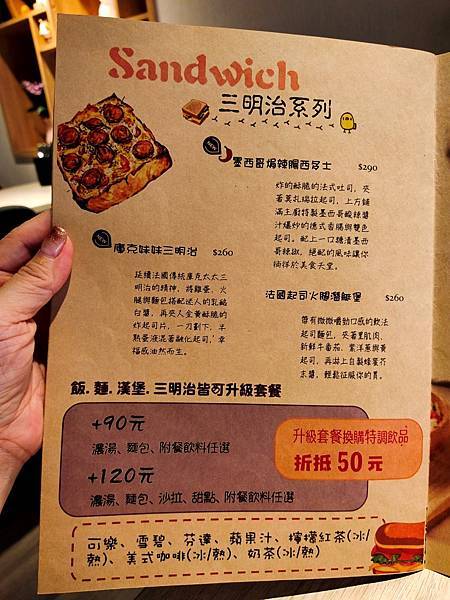 Sandwich
三明治系列
墨西哥焗辣腸西多士 $290
炸的酥脆的法式吐司，夾
著莫扎瑞拉起司，上方鋪
滿王廚特製墨西哥酸辣醬
汁爆炒的德式香腸與雙色
起司。配上一口醃漬墨西
哥辣椒，絕配的風味讓你
徜徉於美食天堂。
庫克妹妹三明治 $260
延續法國傳統庫克太太三
明治的精神，將雞蛋、火
腿與麵包搭配迷人的乳酪
白醬，再夾入金黃酥脆的
炸起司片，一刀劃下，半
熟蛋液混著融化起司，幸
福感油然而生。
法國起司火腿潛艇堡 $260
帶有微微嚼勁口感的軟法
起司麵包，夾著里肌肉，
新鮮牛番茄、紫洋蔥與黃
起司，再淋上自製蜂蜜芥
末醬，輕鬆征服你的胃。
飯.麵.漢堡.三明治皆可升級套餐
+90元
濃湯、麵包、附餐飲料任選
+120元
濃湯、麵包、沙拉、甜點、附餐飲料任選
升級套餐換購特調飲品
折抵 50 元
可樂、雪碧、芬達、蘋果汁、檸檬紅茶(冰/
熱)、美式咖啡(冰/熱)、奶茶(冰/熱)